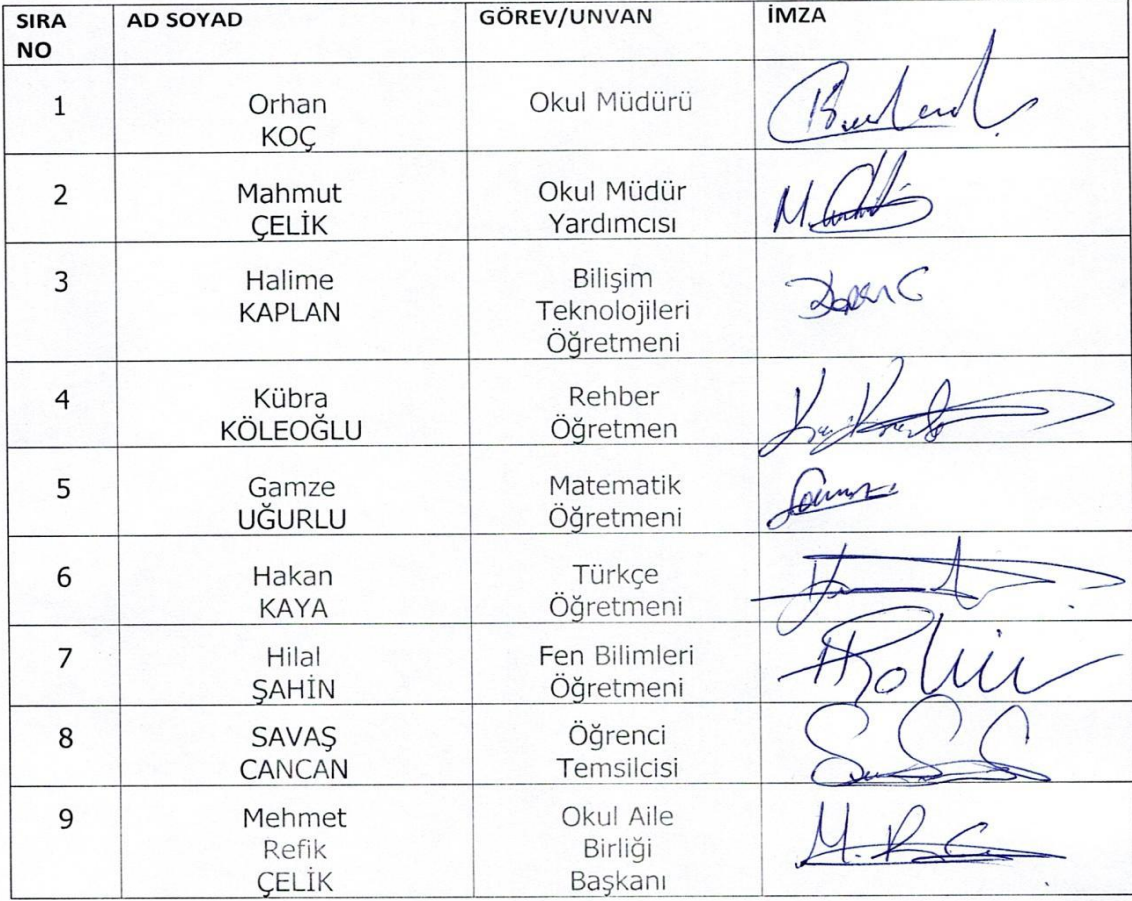 SIRA NO AD SOYAD GÖREV/UNVAN İMZA
1 Orhan KOÇ Okul Müdürü
2 Mahmut ÇELİK Okul Müdür Yardımcısı
3 Halime KAPLAN Bilişim Teknolojileri Öğretmeni
4 Kübra KÖLEOĞLU Rehber Öğretmen
5 Gamze UĞURLU Matematik Öğretmeni
6 Hakan KAYA Türkçe Öğretmeni
7 Hilal ŞAHİN Fen Bilimleri Öğretmeni
8 SAVAŞ CANCAN Öğrenci Temsilcisi
9 Mehmet Refik ÇELİK Okul Aile Birliği Başkanı